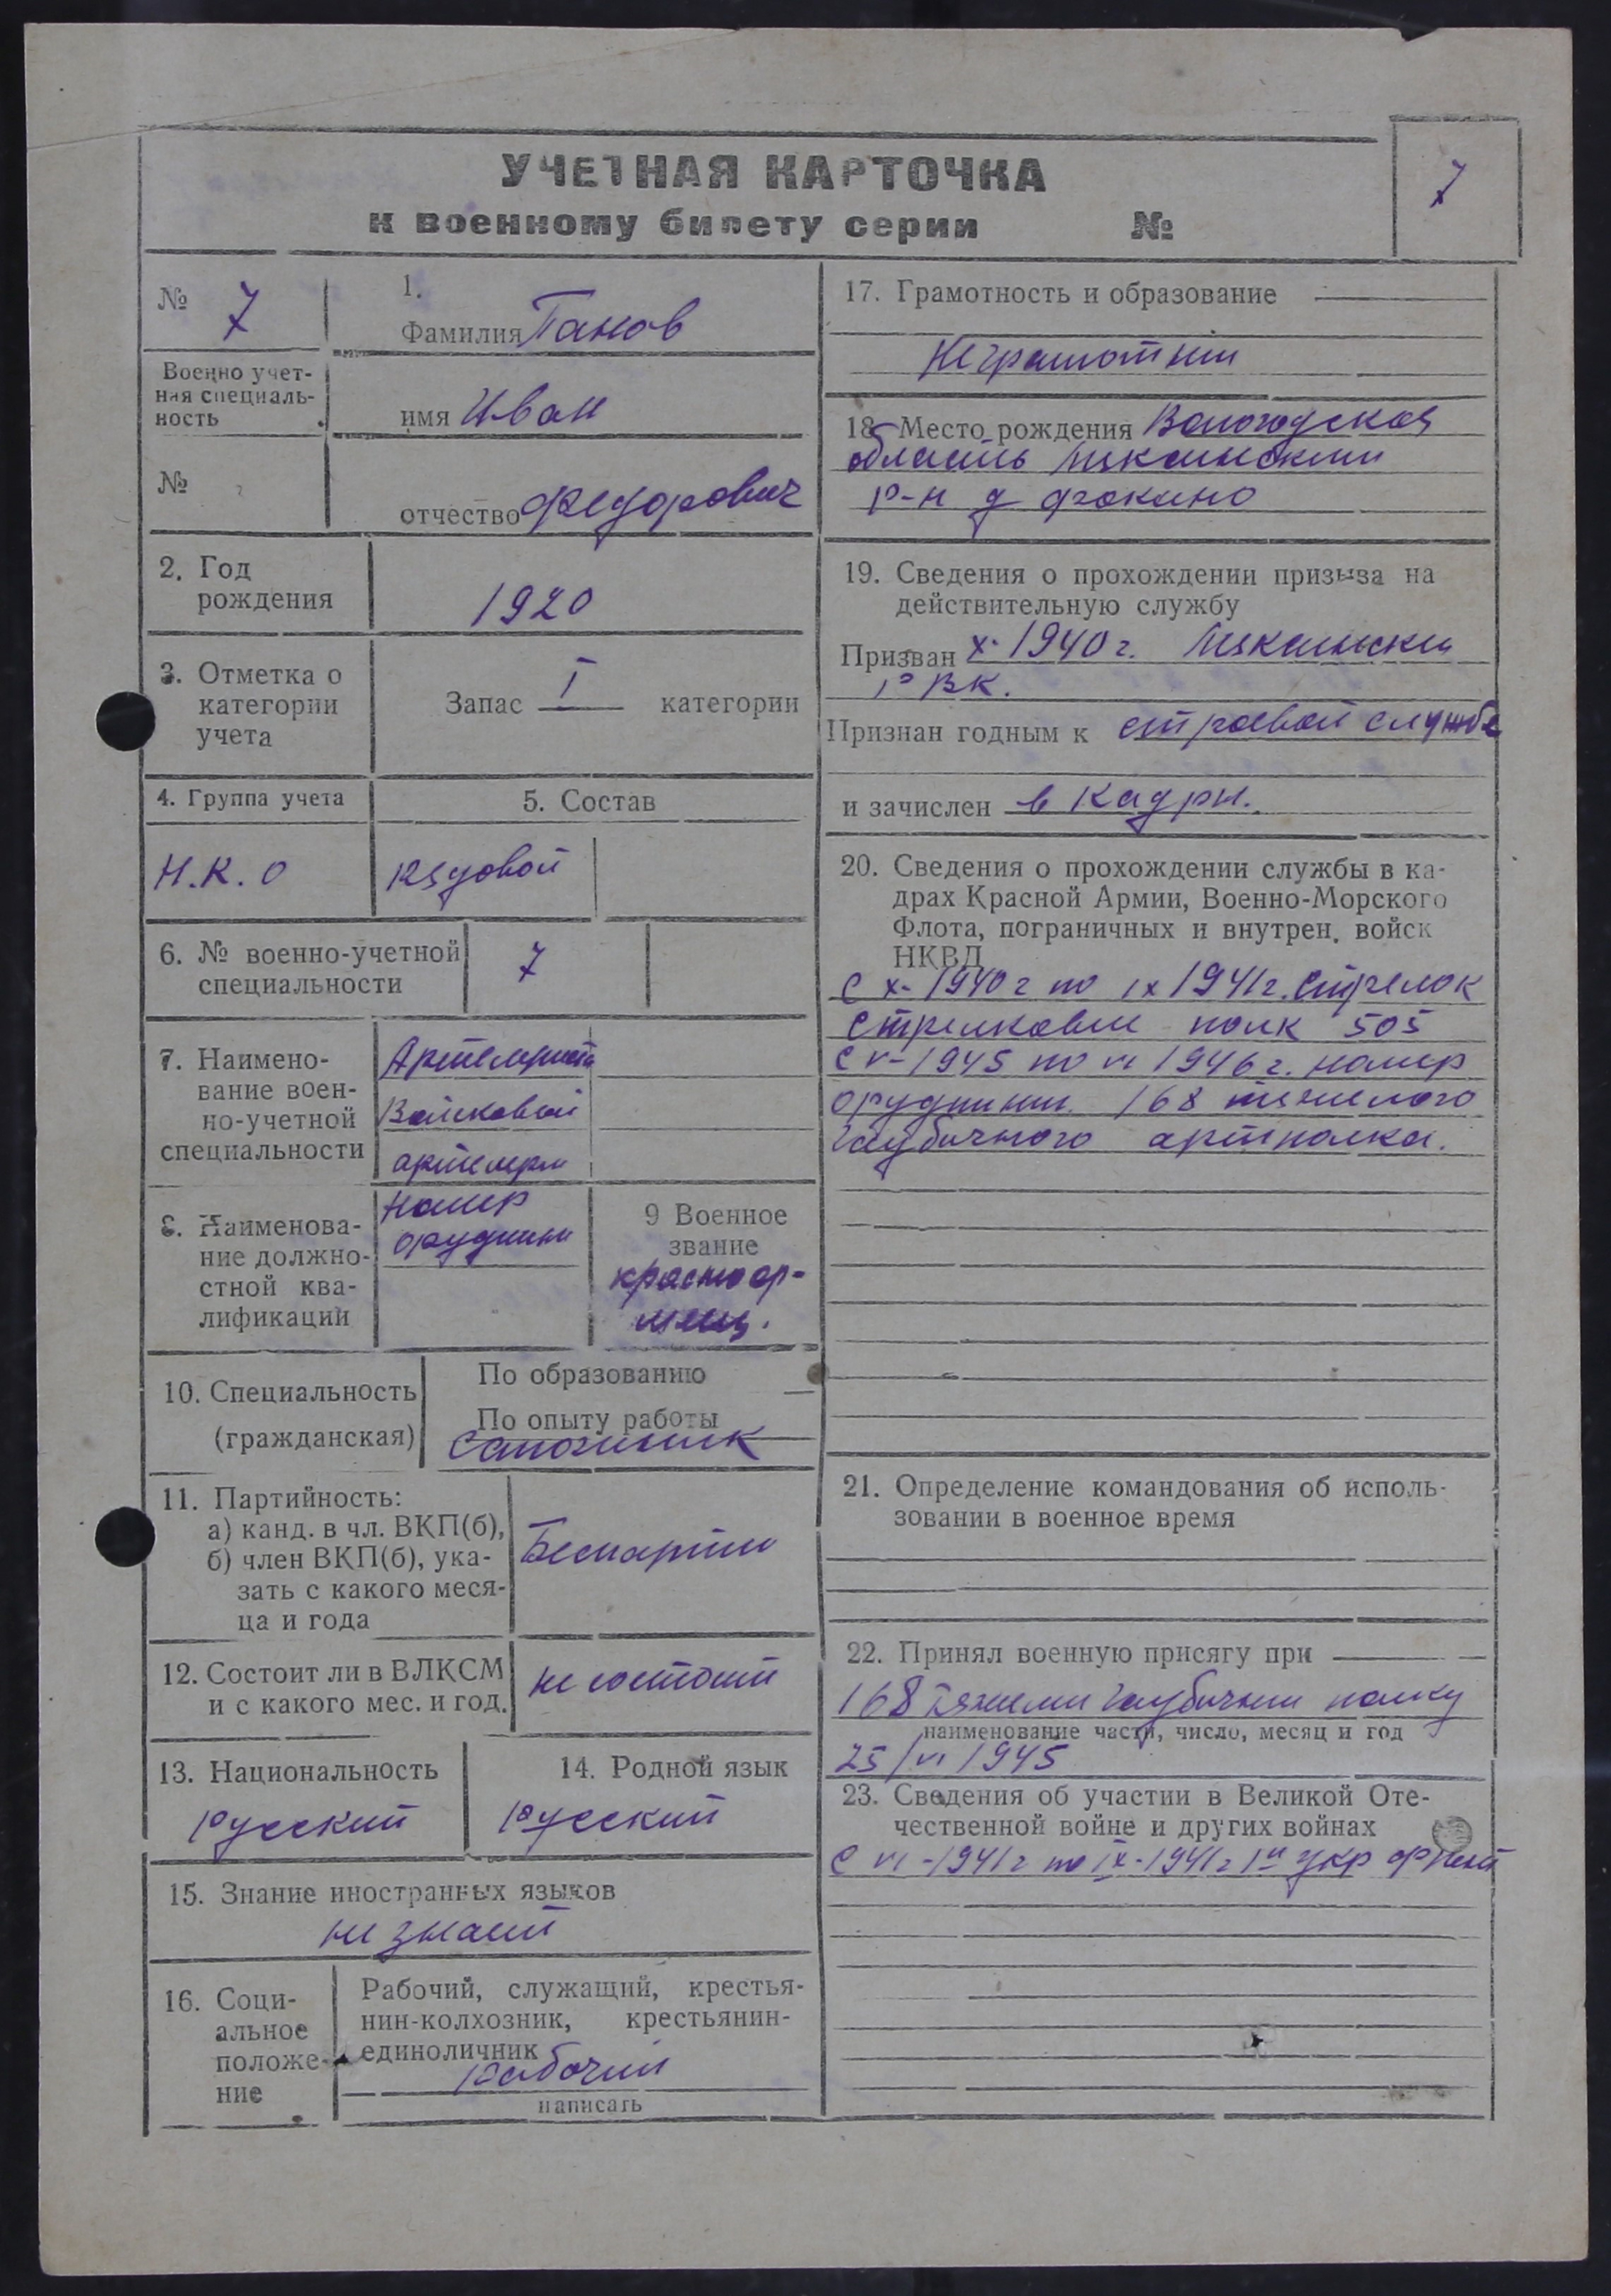 УЧЕТНАЯ КАРТОЧКА
к военному билету серии №
7
№ 7
1.
Фамилия Ганов
Военно учет-
ная специаль-
ность
имя Иван
№
отчество Федорович
2. Год
рождения
1920
3. Отметка о
категории
учета
Запас I категории
4. Группа учета
5. Состав
Н.К.О
рядовой
6. № военно-учетной
специальности
7
7. Наимено-
вание воен-
но-учетной
специальности
Артелериста
Войсковой
артелери
8. Наименова-
ние должно-
стной ква-
лификации
номер
орудиини
9 Военное
звание
красноар-
меец.
10. Специальность
(гражданская)
По образованию
По опыту работы
Сапожник
11. Партийность:
а) канд. в чл. ВКП(б),
б) член ВКП(б), ука-
зать с какого меся-
ца и года
Беспартии
12. Состоит ли в ВЛКСМ
и с какого мес. и год.
не состоит
13. Национальность
Русский
14. Родной язык
Русский
15. Знание иностранных языков
не знает
16. Соци-
альное
положе-
ние
Рабочий, служащий, крестья-
нин-колхозник, крестьянин-
единоличник
Рабочий
написать
17. Грамотность и образование
Неграмотни
18. Место рождения Вологодская
область
р-н д Фокино
19. Сведения о прохождении призыва на
действительную службу
Призван X. 1940 г.
РВК.
Признан годным к строевой службе
и зачислен в кадри.
20. Сведения о прохождении службы в ка-
драх Красной Армии, Военно-Морского
Флота, пограничных и внутрен. войск
НКВД
С X-1940 г по IX 1941 г. Стрелок
стрелковие полк 505
С V-1945 по VI 1946 г. номер
орудиини. 168 тяжелого
гаубичного артполка.
21. Определение командования об исполь-
зовании в военное время
22. Принял военную присягу при
168 тяжели гаубични полку
наименование части, число, месяц и год
25/VI 1945
23. Сведения об участии в Великой Оте-
чественной войне и других войнах
С VI-1941 г по IX-1941 г 1й укр фронт